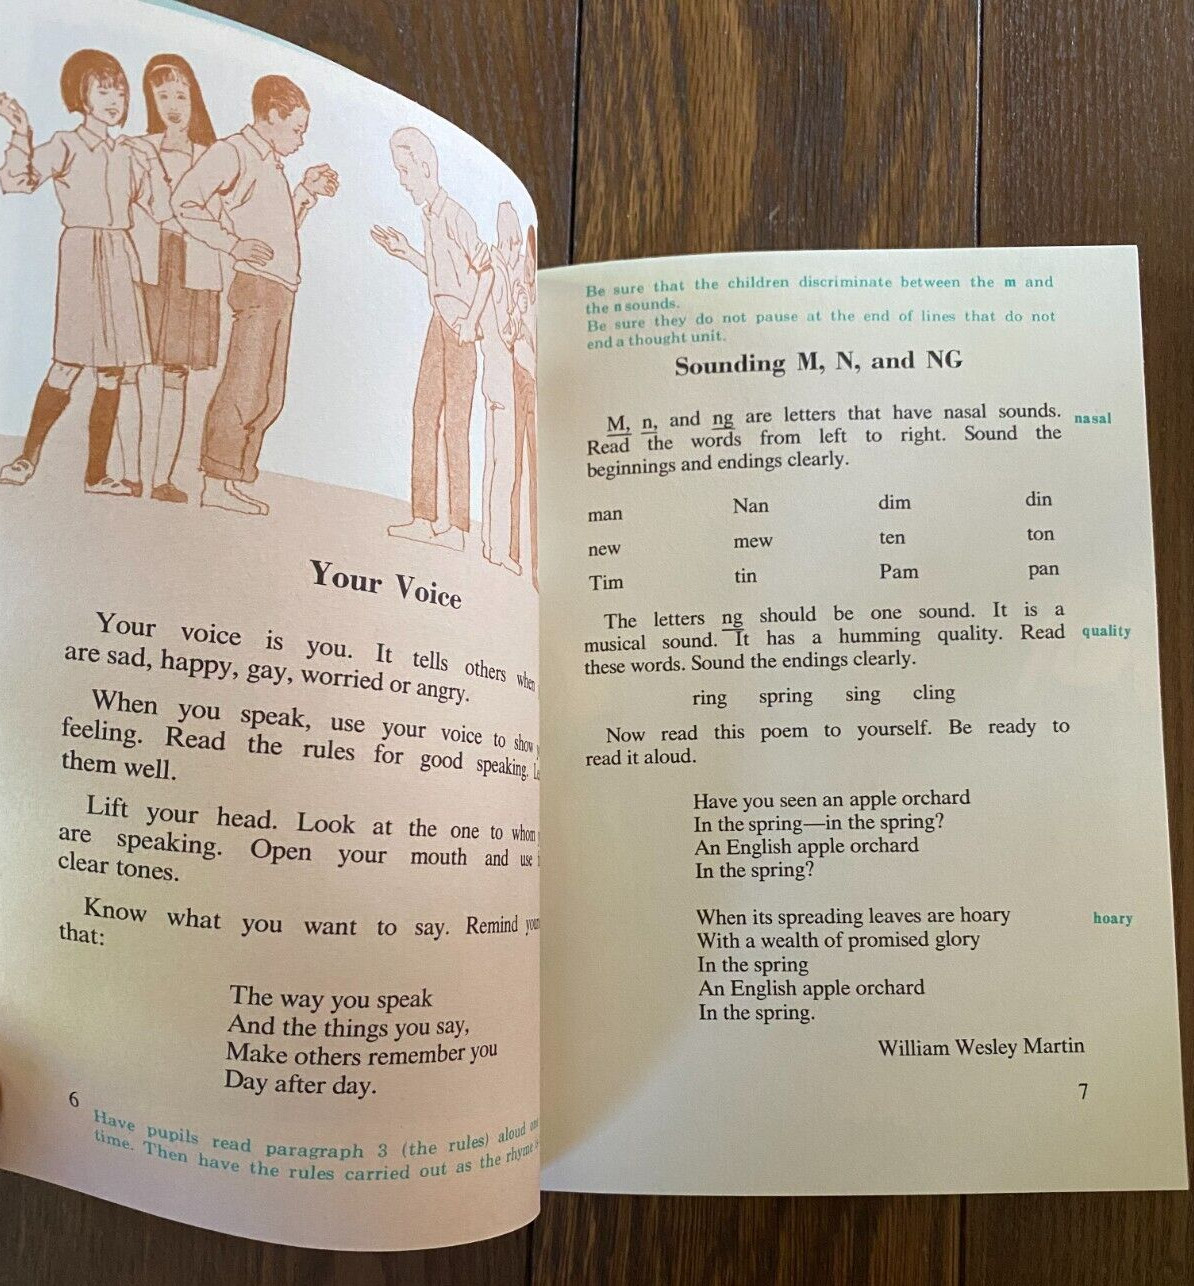 Your Voice
Your voice is you. It tells others when
are sad, happy, gay, worried or angry.
When you speak, use your voice to show
feeling. Read the rules for good speaking.
them well.
Lift your head. Look at the one to whom
are speaking. Open your mouth and use
clear tones.
Know what you want to say. Remind
that:
The way you speak
And the things you say,
Make others remember you
Day after day.
6
Have pupils read paragraph 3 (the rules) aloud
time. Then have the rules carried out as the rhyme
Be sure that the children discriminate between the m and
the n sounds.
Be sure they do not pause at the end of lines that do not
end a thought unit.
Sounding M, N, and NG
M, n, and ng are letters that have nasal sounds. nasal
Read the words from left to right. Sound the
beginnings and endings clearly.
man Nan dim din
new mew ten ton
Tim tin Pam pan
The letters ng should be one sound. It is a
musical sound. It has a humming quality. Read quality
these words. Sound the endings clearly.
ring spring sing cling
Now read this poem to yourself. Be ready to
read it aloud.
Have you seen an apple orchard
In the spring—in the spring?
An English apple orchard
In the spring?
When its spreading leaves are hoary hoary
With a wealth of promised glory
In the spring
An English apple orchard
In the spring.
William Wesley Martin
7